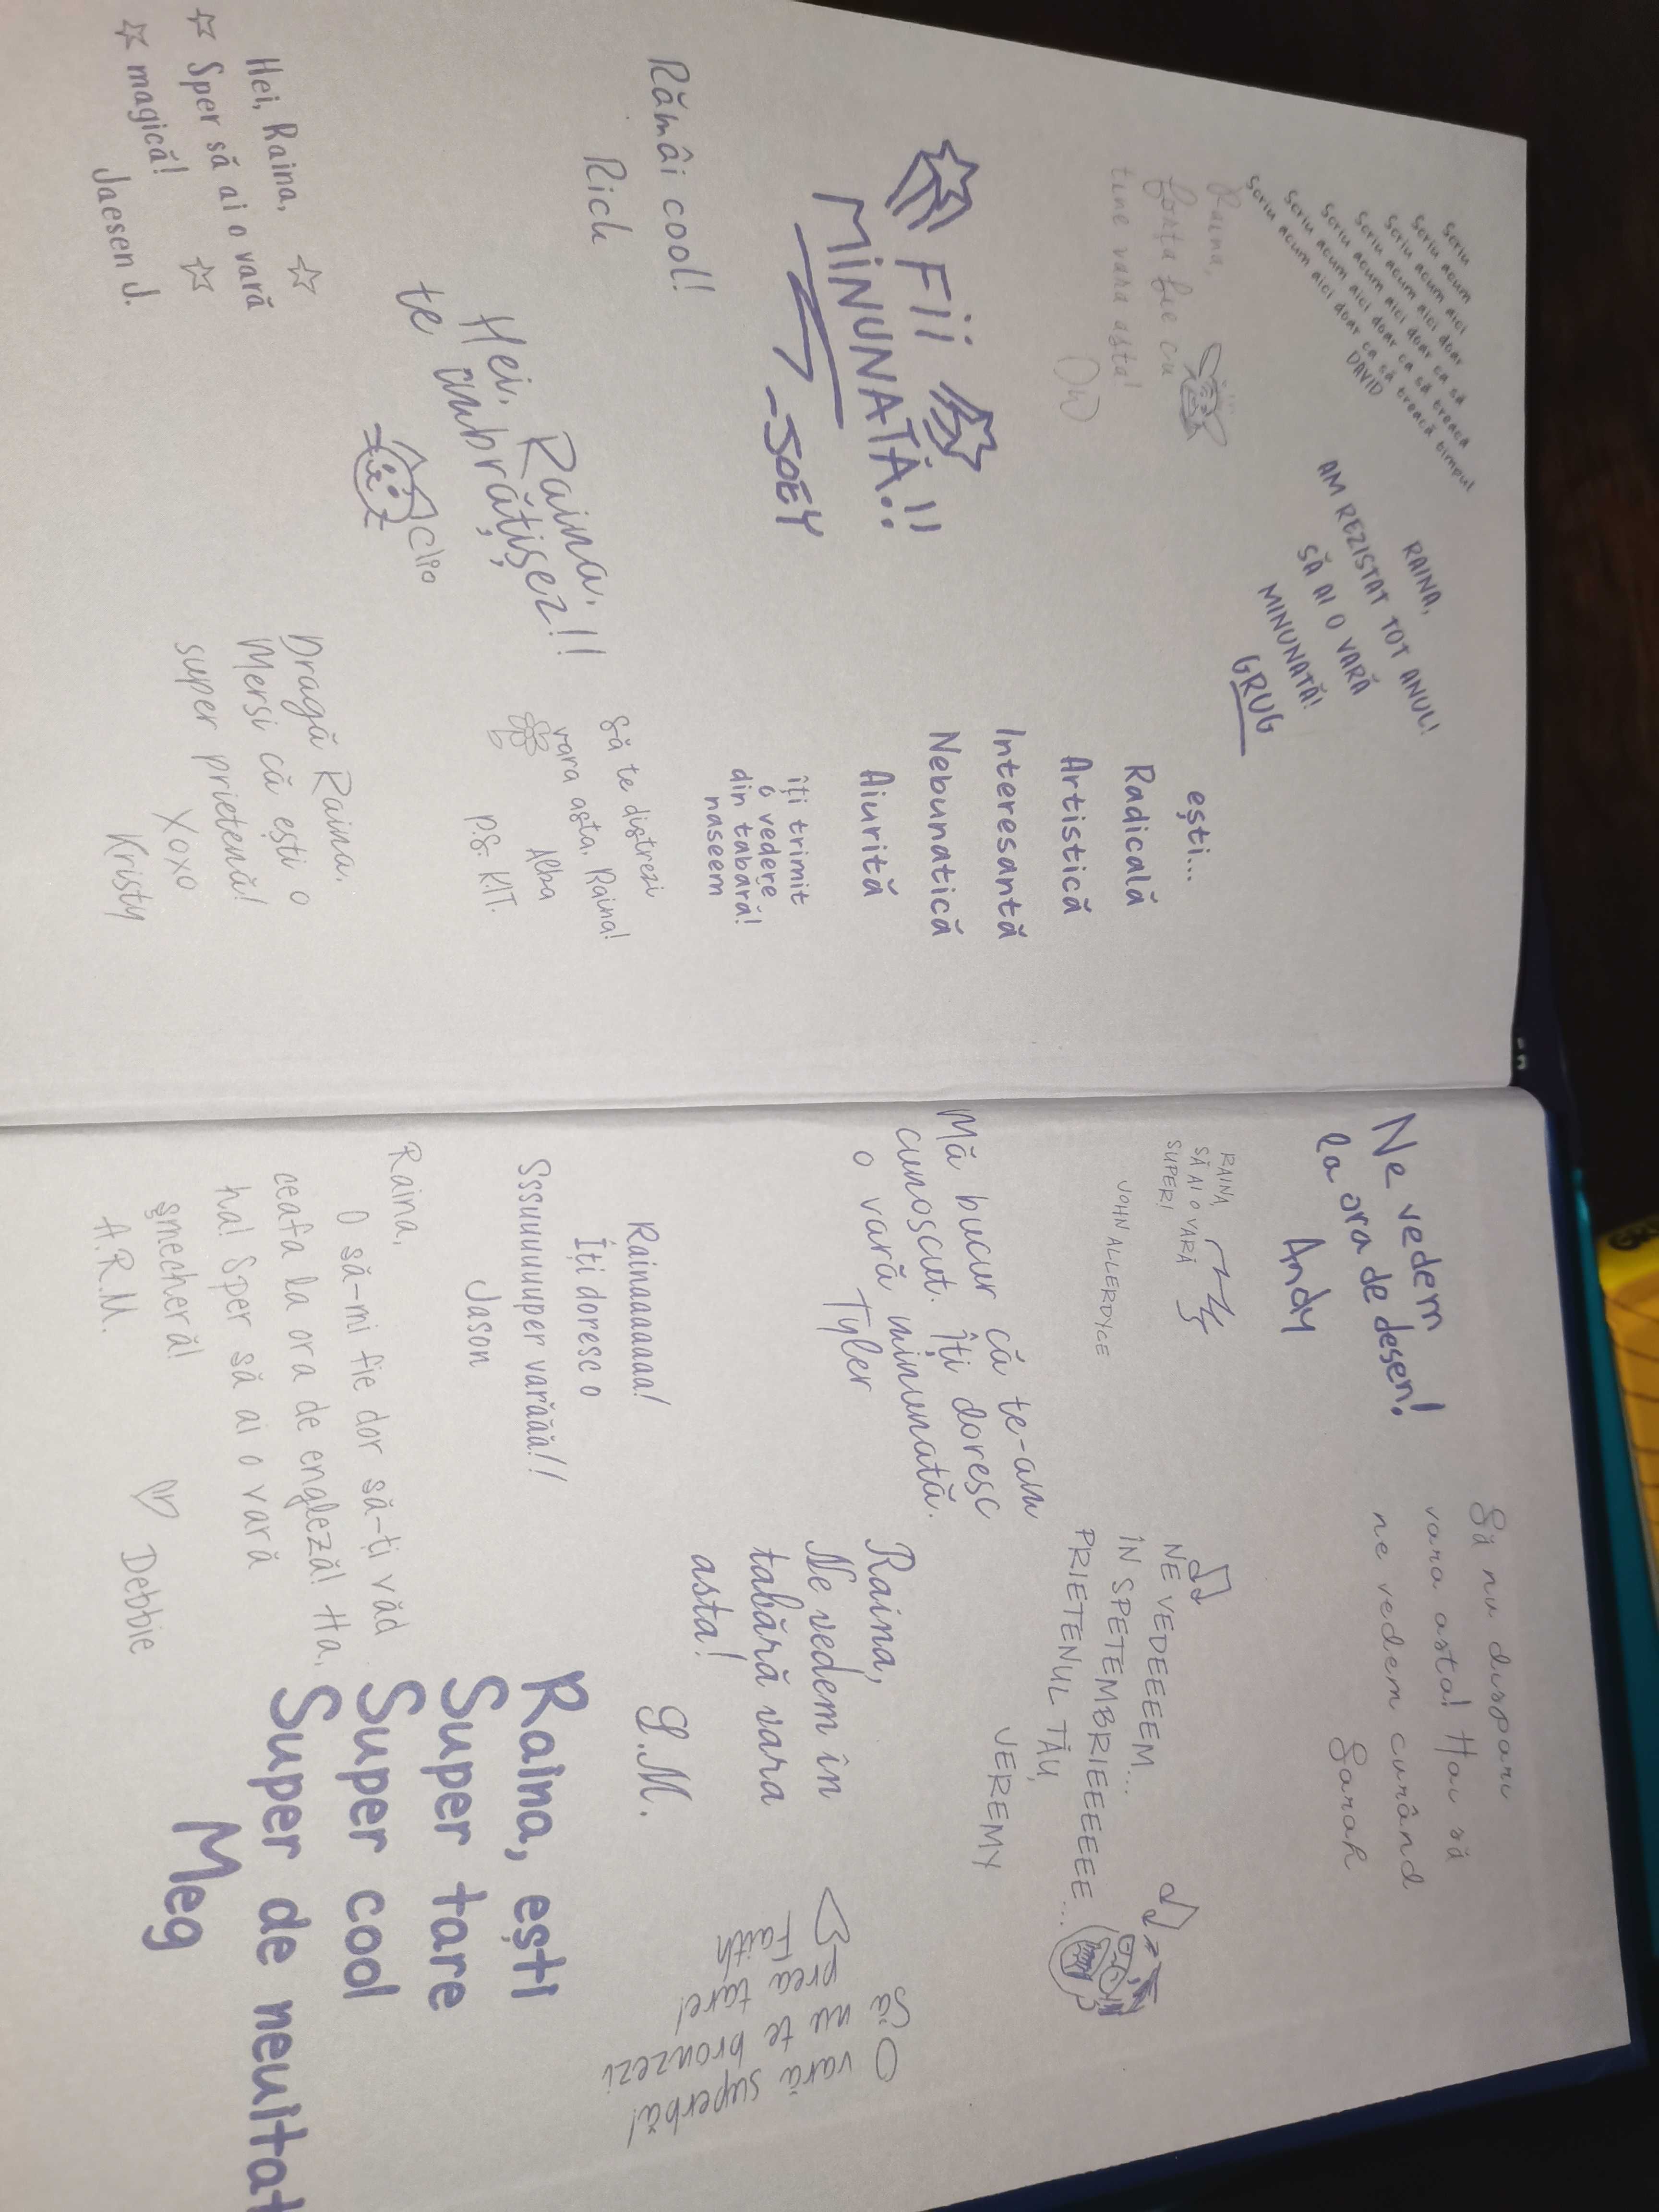 Scriu
Scriu acum
Scriu acum aici
Scriu acum aici doar
Scriu acum aici doar ca să
Scriu acum aici doar ca să treacă
Scriu acum aici doar ca să treacă timpul
DAVID
RAINA,
AM REZISTAT TOT ANUL!
SĂ AI O VARĂ
MINUNATĂ!
GRUG
Raina,
forța fie cu
tine vara asta!
FII
MINUNATĂ!!
-JOEY
ești...
Radicală
Artistică
Interesantă
Nebunatică
Aiurită
îți trimit
o vedere
din tabără!
naseem
Rămâi cool!
Rich
Hei, Raina,
te îmbrățișez!!
Clio
Să te distrezi
vara asta, Raina!
Alba
P.S.: K.I.T.
Hei, Raina,
Sper să ai o vară
magică!
Jaesen J.
Dragă Raina,
Mersi că ești o
super prietenă!
Xoxo
Kristy
Ne vedem
la ora de desen!
Andy
Să nu dispari
vara asta! Hai să
ne vedem curând
Sarah
RAINA,
SĂ AI O VARĂ
SUPER!
JOHN ALLERDYCE
NE VEDEEEEM...
ÎN SPETEMBRIEEEEEE...
PRIETENUL TĂU,
JEREMY
Mă bucur că te-am
cunoscut. Îți doresc
o vară minunată.
Tyler
Raina,
Ne vedem în
tabără vara
asta!
S.M.
O vară superbă!
Să nu te bronzezi
prea tare!
Faith
Rainaaaaaaa!
Îți doresc o
Sssuuuuuper varăăă!!
Jason
Raina,
O să-mi fie dor să-ți văd
ceafa la ora de engleză! Ha,
ha! Sper să ai o vară
șmecheră!
A.R.M.
Debbie
Raina, ești
Super tare
Super cool
Super de neuitat
Meg